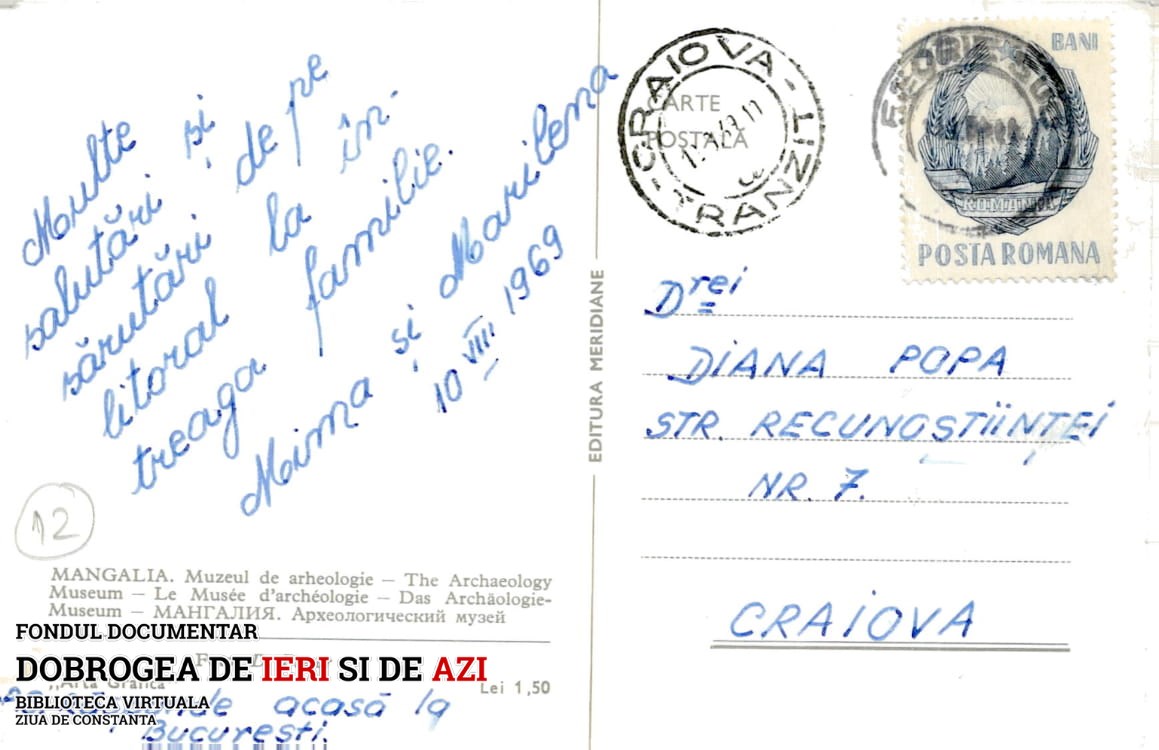 Multe și
salutări
sărutări de pe
litoral la în-
treaga familie.
Mima și Marilena
10 VIII 1969
12
MANGALIA. Muzeul de arheologie – The Archaeology
Museum – Le Musée d'archéologie – Das Archäologie-
Museum – МАНГАЛИЯ. Археологический музей
FONDUL DOCUMENTAR
DOBROGEA DE IERI SI DE AZI
„Arta Grafică
Lei 1,50
BIBLIOTECA VIRTUALA
ZIUA DE CONSTANTA
acasă la
București.
EDITURA MERIDIANE
CARTE
POSTALĂ
CRAIOVA - TRANZIT
BANI
ROMANIA
POSTA ROMANA
Drei
DIANA POPA
STR. RECUNOȘTIINȚEI
NR. 7.
CRAIOVA